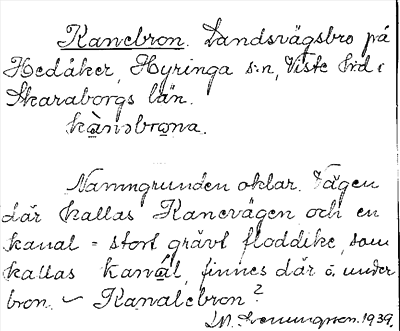 Kanebron. Landsvägsbro på
Hedåker, Hyringa s:n, Viste hd i
Skaraborgs län.
kànəbrǫna.
Namngrunden oklar. Vägen
där kallas Kanevägen och en
kanal = stort grävt floddike, som
kallas kanál, finnes där å under
bron. ~ Kanalebron?
1939.